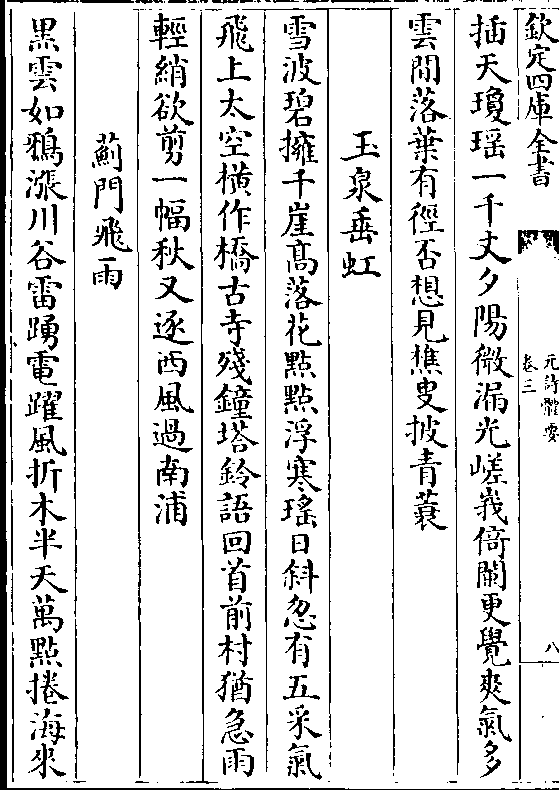 欽定四庫全書
元詩體要
卷三
八
插天瓊瑶一千丈夕陽微漏光嵯峩倚闌更覺爽氣多
雲間落葉有徑否想見樵叟披青蓑
玉泉垂虹
雪波碧擁千崖髙落花點點浮寒瑤日斜忽有五采氣
飛上太空横作橋古寺殘鐘塔鈴語回首前村猶急雨
輕綃欲剪一幅秋又逐西風過南浦
薊門飛雨
黒雲如鴉漲川谷雷踴電躍風折木半天萬點捲海來